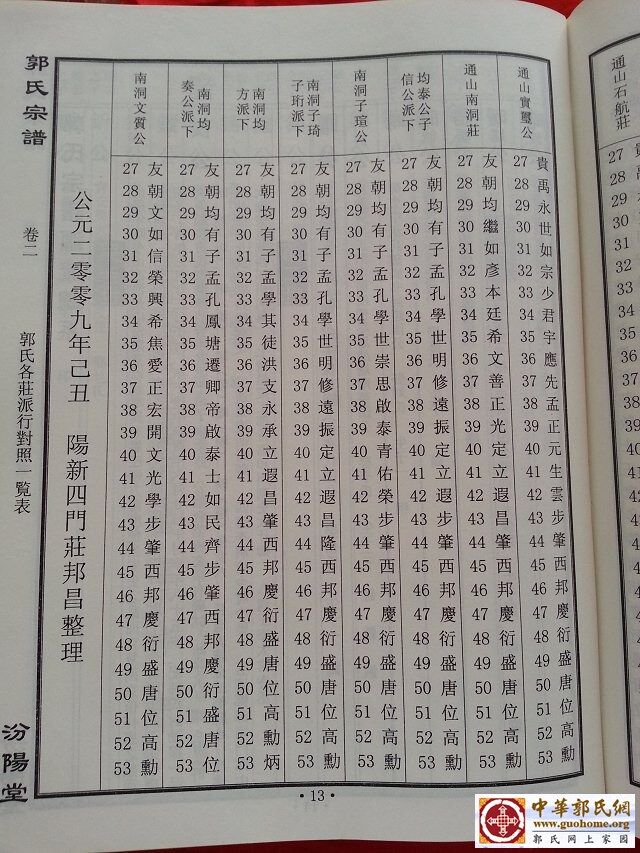 通山石航莊
通山寶璽公
27 貴 28 禹 29 永 30 世 31 如 32 宗 33 少 34 君 35 宇 36 應 37 先 38 孟 39 正 40 元 41 生 42 雲 43 步 44 肇 45 西 46 邦 47 慶 48 衍 49 盛 50 唐 51 位 52 高 53 勳
通山南洞莊
27 友 28 朝 29 均 30 繼 31 如 32 彥 33 本 34 廷 35 希 36 文 37 善 38 正 39 光 40 定 41 立 42 遐 43 昌 44 肇 45 西 46 邦 47 慶 48 衍 49 盛 50 唐 51 位 52 高 53 勳
均泰公子
信公派下
27 友 28 朝 29 均 30 有 31 子 32 孟 33 孔 34 學 35 世 36 明 37 修 38 遠 39 振 40 定 41 立 42 遐 43 步 44 肇 45 西 46 邦 47 慶 48 衍 49 盛 50 唐 51 位 52 高 53 勳
南洞子瑄公
27 友 28 朝 29 均 30 有 31 子 32 孟 33 孔 34 學 35 世 36 崇 37 思 38 啟 39 泰 40 青 41 佑 42 榮 43 步 44 肇 45 西 46 邦 47 慶 48 衍 49 盛 50 唐 51 位 52 高 53 勳
南洞子琦
子珩派下
27 友 28 朝 29 均 30 有 31 子 32 孟 33 孔 34 學 35 世 36 明 37 修 38 遠 39 振 40 定 41 立 42 遐 43 昌 44 隆 45 西 46 邦 47 慶 48 衍 49 盛 50 唐 51 位 52 高 53 勳
南洞均
方派下
27 友 28 朝 29 均 30 有 31 子 32 孟 33 學 34 其 35 徒 36 洪 37 支 38 永 39 承 40 立 41 遐 42 昌 43 肇 44 西 45 邦 46 慶 47 衍 48 盛 49 唐 50 位 51 高 52 勳 53 炳
南洞均
奏公派下
27 友 28 朝 29 均 30 有 31 子 32 孟 33 孔 34 鳳 35 塘 36 遷 37 卿 38 帝 39 啟 40 泰 41 士 42 如 43 民 44 齊 45 步 46 肇 47 西 48 邦 49 慶 50 衍 51 盛 52 唐 53 位
南洞文質公
27 友 28 朝 29 文 30 如 31 信 32 榮 33 興 34 希 35 焦 36 愛 37 正 38 宏 39 開 40 文 41 光 42 學 43 步 44 肇 45 西 46 邦 47 慶 48 衍 49 盛 50 唐 51 位 52 高 53 勳
公元二零零九年己丑 陽新四門莊邦昌整理
郭氏宗譜 卷二 郭氏各莊派行對照一覽表 汾陽堂
·13·
中華郭氏網
www.guohome.org
郭氏网上家园